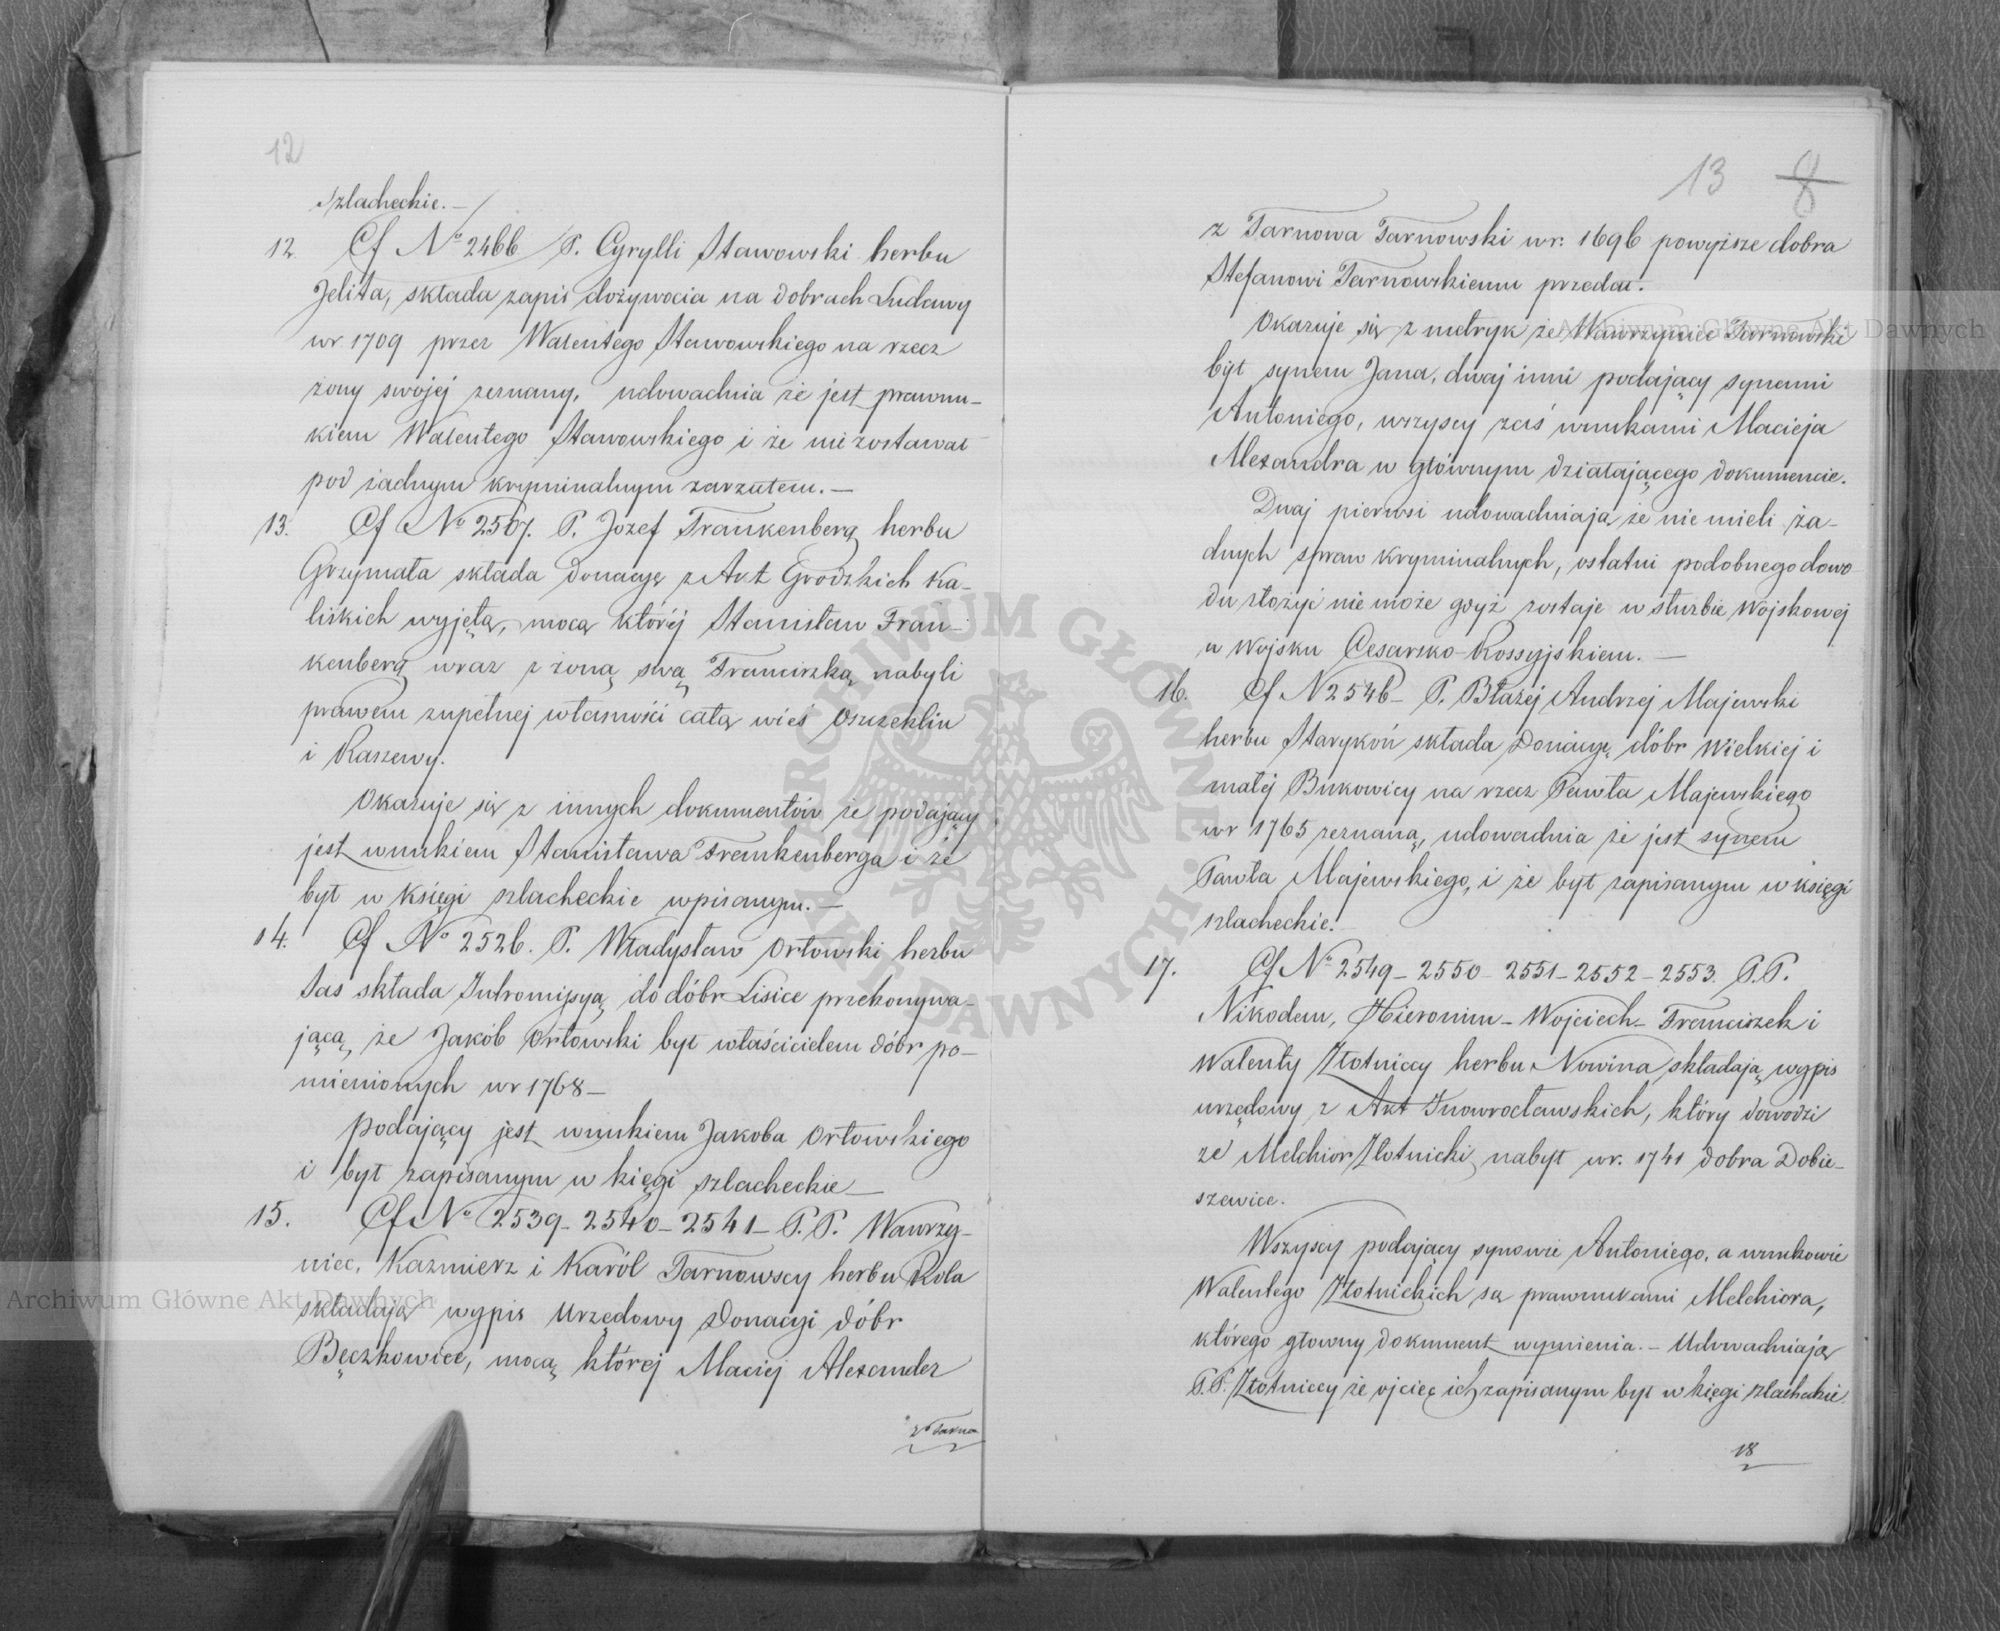 12
szlacheckie.—
12. Cf No 2466 P. Cyrylli Stawowski herbu
Jelita, składa zapis dożywocia na dobrach Ludawy
w r 1709 przez Walentego Stawowskiego na rzecz
żony swojej zeznany, udowadnia że jest prawnu-
kiem Walentego Stawowskiego i że nie zostawał
pod żadnym kryminalnym zarzutem.—
13. Cf No 2507. P. Józef Frankenberg herbu
Grzymała składa Donacyę z Akt Grodzkich Ka-
liskich wyjętą, mocą któréj Stanisław Fran-
kenberg wraz z żoną swą Franciszką nabyli
prawem zupełnej własności całą wieś Oszczeklin
i Raszewy.
Okazuje się z innych dokumentów że podający
jest wnukiem Stanisława Frankenberga i że
był w księgi szlacheckie wpisanym.—
14. Cf No 2526. P. Władysław Orłowski herbu
Sas składa Intromissyą do dóbr Lisice przekonywa-
jącą, że Jakób Orłowski był właścicielem dóbr po-
mienionych w r 1768—
podający jest wnukiem Jakoba Orłowskiego
i był zapisanym w kięgi szlacheckie—
15. Cf No 2539-2540-2541- P.P. Wawrzy-
niec, Kazmierz i Karól Tarnowscy herbu Rola
składają wypis Urzędowy Donacyi dóbr
Bęczkowice, mocą której Maciej Alexander
z Tarno
13 8
z Tarnowa Tarnowski w r. 1696 powyższe dobra
Stefanowi Tarnowskiemu przedał.
Okazuje się z metryk że Wawrzyniec Tarnowski
był synem Jana, dwaj inni podający synami
Antoniego, wszyscy zaś wnukami Macieja
Alexandra w głównym działającego dokumencie.
Dwaj pierwsi udowadniają że nie mieli ża-
dnych spraw kryminalnych, ostatni podobnego dowo
du złożyć nie może gdyż zostaje w służbie Wojskowej
w Wojsku Cesarsko-Rossyjskiem.—
16. Cf N 2546- P. Błażej Andrzej Majewski
herbu Starykoń składa Donacyę dóbr Wielkiej i
małej Bukowicy na rzecz Pawła Majewskiego
w r 1765 zeznaną, udowadnia że jest synem
Pawła Majewskiego, i że był zapisanym w księgi
szlacheckie.
17. Cf No 2549-2550-2551-2552-2553. P.P.
Nikodem, Hieronim-Wojciech-Franciszek i
Walenty Złotniccy herbu Nowina składają wypis
urzędowy z Akt Inowrocławskich, który dowodzi
że Melchior Złotnicki nabył w r. 1741 dobra Dobie-
szewice.
Wszyscy podający synowie Antoniego, a wnukowie
Walentego Złotnickich są prawnukami Melchiora,
którego głowny dokument wymienia.— Udowadniają
P.P. Złotniccy że ojciec ich zapisanym był w kięgi szlacheckie.
18
Archiwum Główne Akt Dawnych
Archiwum Główne Akt Dawnych
ARCHIWUM GŁÓWNE AKT DAWNYCH